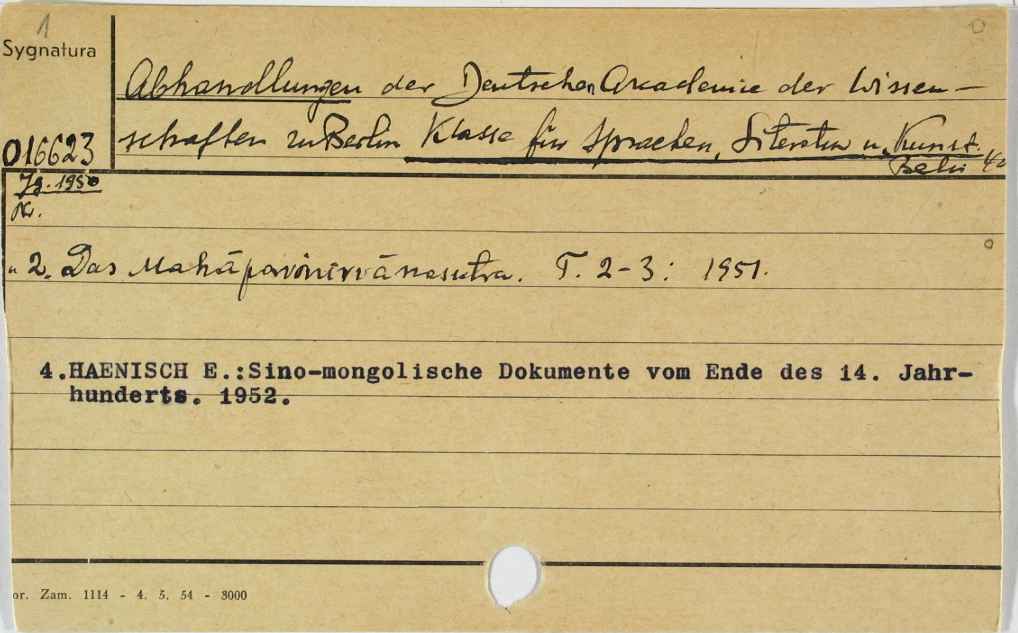 1
Sygnatura
Abhandlungen der Deutschen Akademie der Wissen-
schaften zu Berlin Klasse für Sprachen, Literatur u. Kunst.
016623
Berlin 4°
Jg. 1950
Nr.
" 2. Das Mahāparinirvānasutra. T. 2-3: 1951.
4.HAENISCH E.:Sino-mongolische Dokumente vom Ende des 14. Jahr-
hunderts. 1952.
or. Zam. 1114 - 4. 5. 54 - 3000